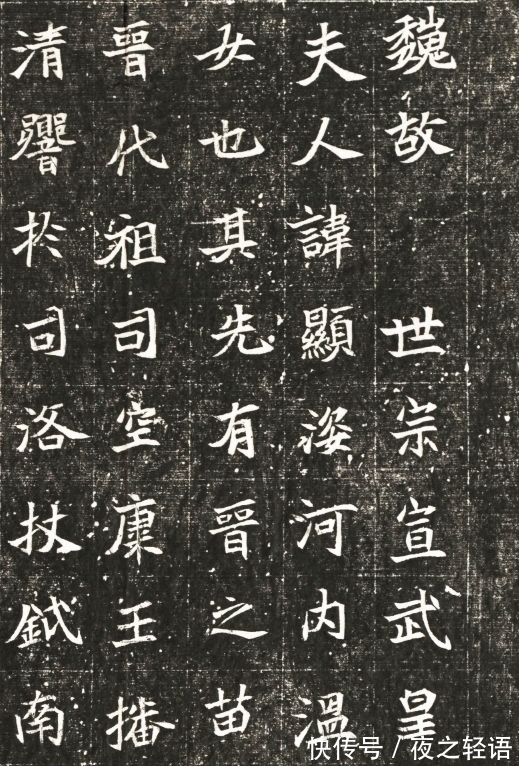 魏故世宗宣武皇
夫人諱顯姿河内溫
女也其先有晉之苗
晉代祖司空康王播
清響於司洛扙鉞南
快传号 / 夜之轻语